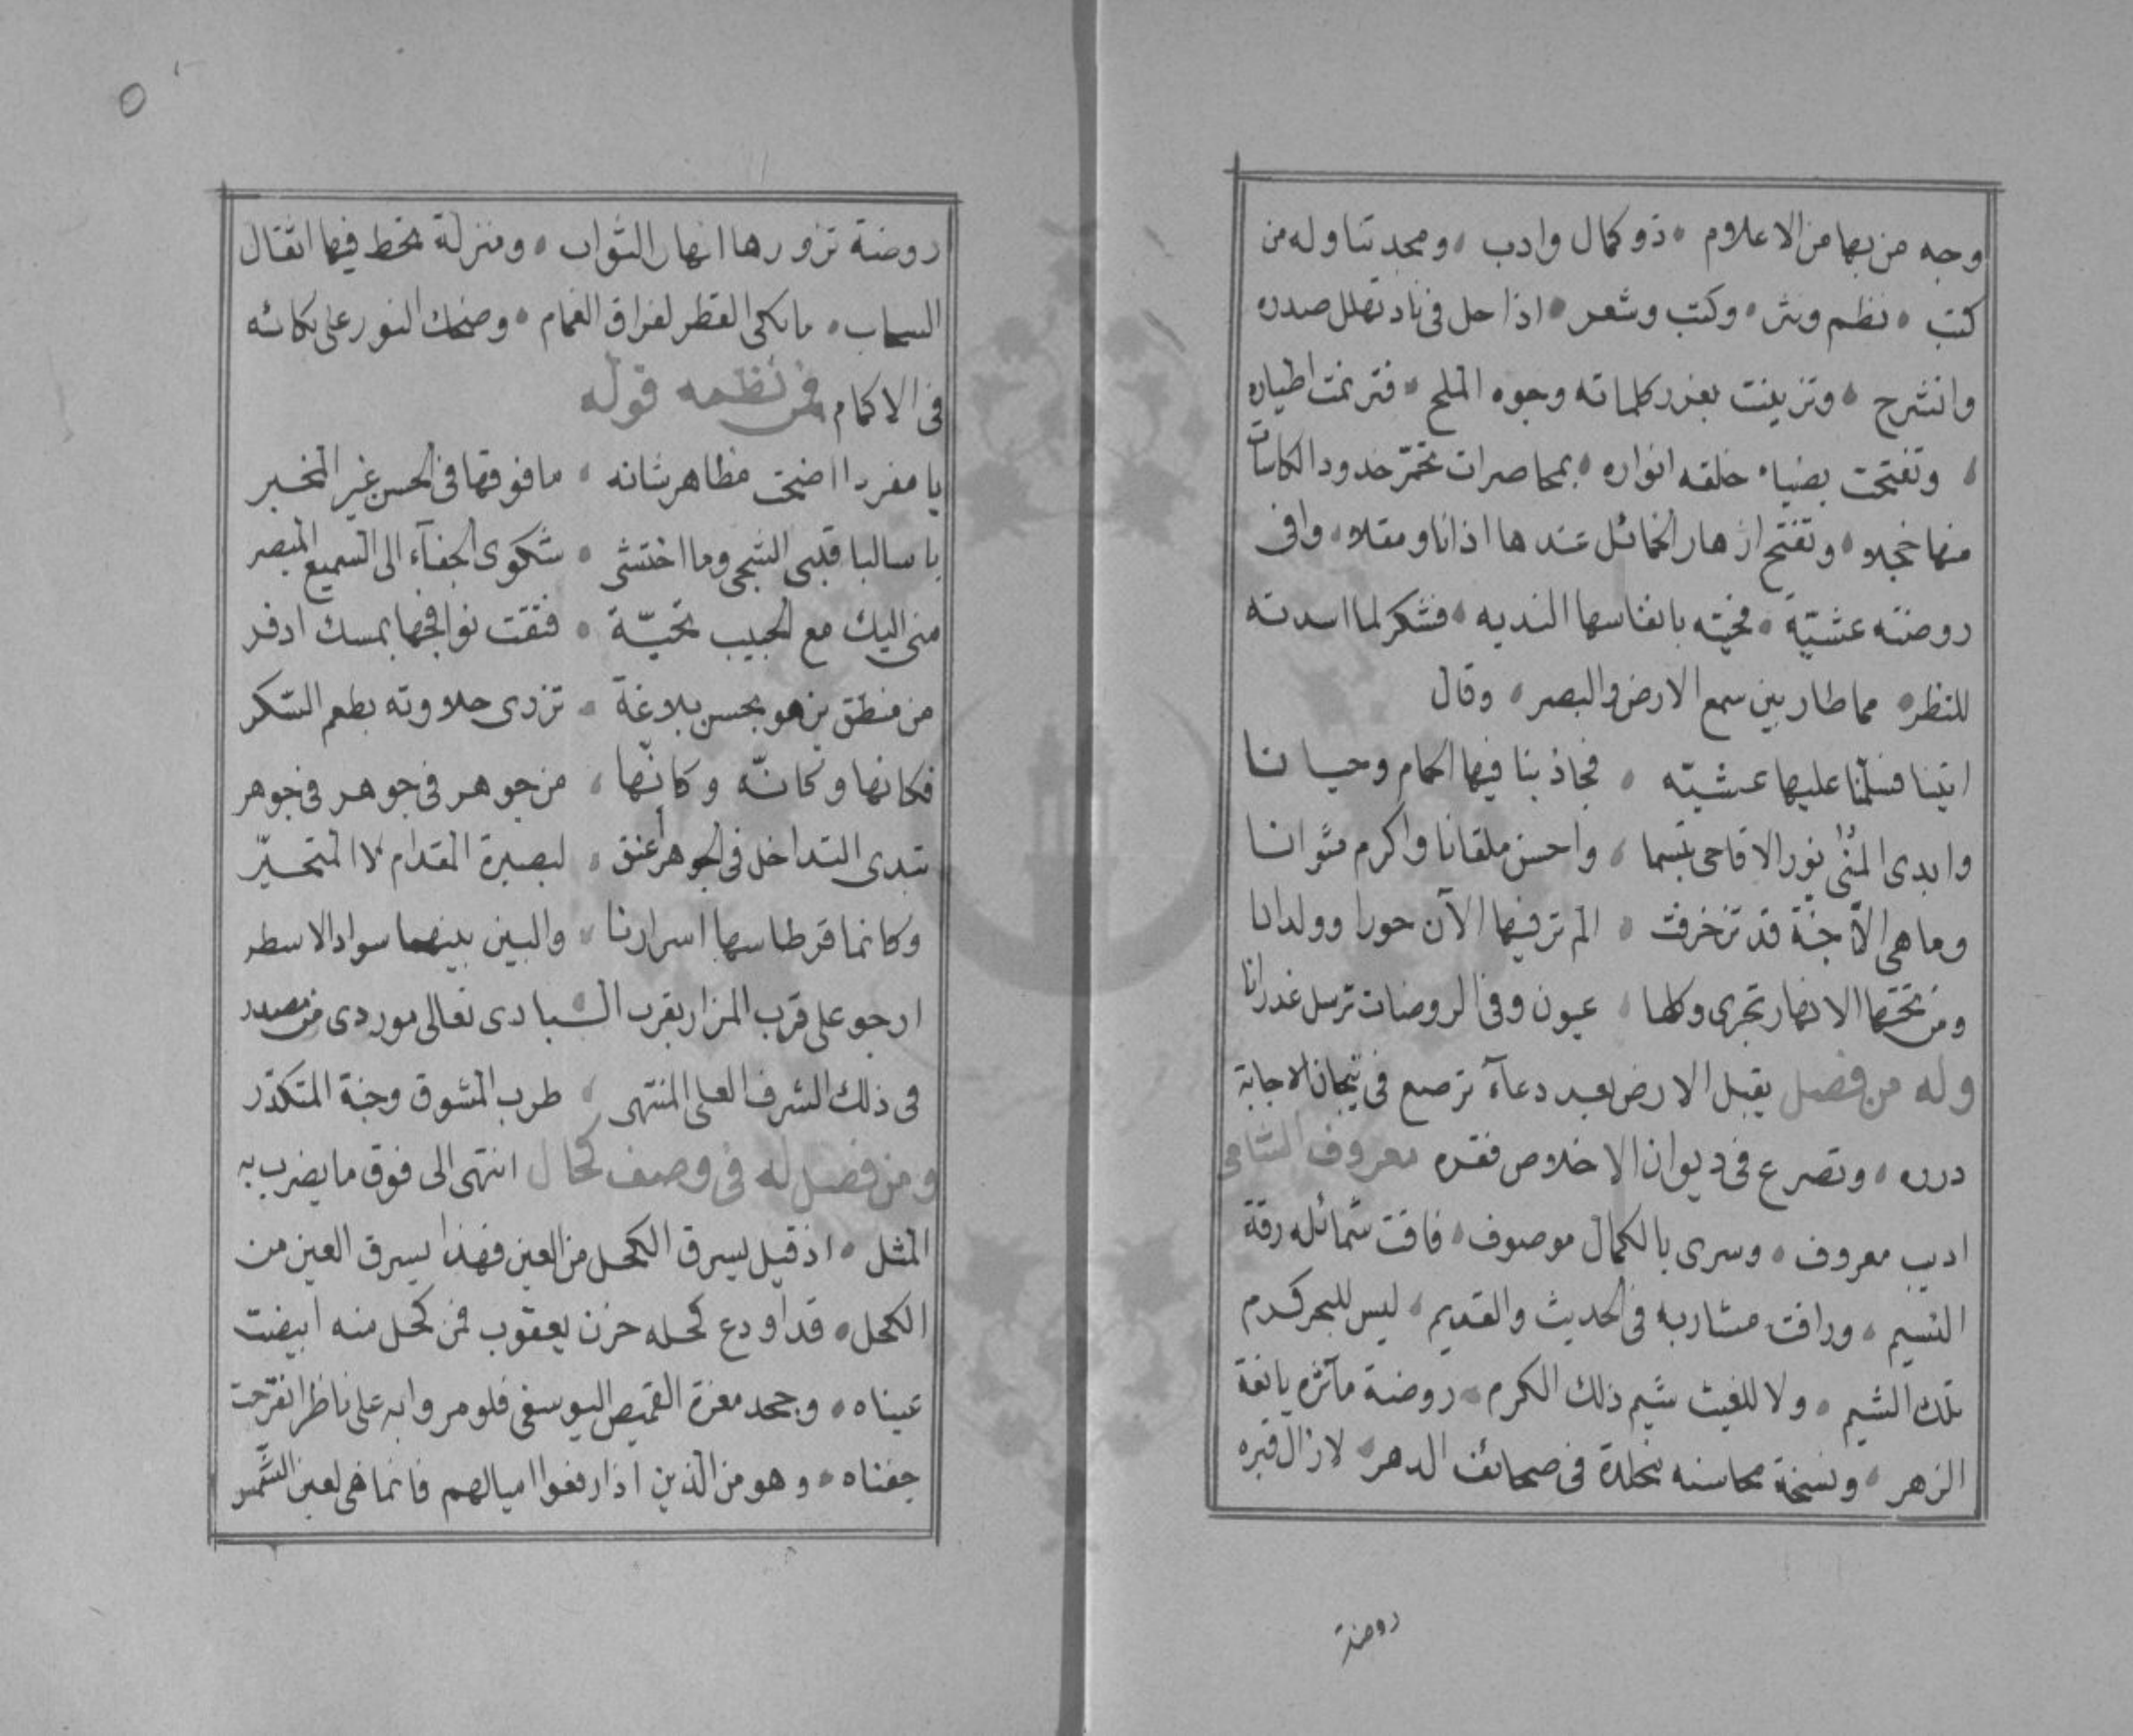 وجه من بها من الاعلام ، ذو كمال وادب ، ومجد تناوله من
كتب ، نظم ونثر ، وكتب وشعر ، اذا حل فى ناد تهلل صدره
وانشرح ، وتزينت بغرر كلماته وجوه الملح ، فترنمت اطياره
، وتفتحت بضياء خلقه انواره ، بمحاضرات تخمّر خدود الكاسات
منها خجلا ، وتفتح ازهار الخمائل عندها اذانا ومقلا ، وافى
روضته عشيّة ، فحيته بانفاسها النديه ، فشكر لما اسدته
للنظر ، مما طار بين سمع الارض والبصر ، وقال
اتينا فسلّمنا عليها عشيّه ، فجاذبنا فيها الحمام وحيانا
وابدى لمثنى نور الاقاحى تبسما ، واحسن ملقانا واكرم مثوانا
وما هى الّا جنّة قد تزخرفت ، الم تر فيها الآن حورا وولدانا
ومن تحتها الانهار تجرى وكلها ، عيون وفى الروضات ترسل غدرانا
وله من فصل يقبل الارض بعد دعآء ترصع فى تيجان الاجابة
درره ، وتصرع فى ديوان الاخلاص فقره معروف الشامى
اديب معروف ، وسرى بالكمال موصوف ، فاقت شمائله رقة
النسيم ، وراقت مشاربه فى الحديث والقديم ، ليس للبحر كرم
تلك الشيم ، ولا للغيث شيم ذلك الكرم ، روضة مآثره يانعة
الزهر ، ونسخة محاسنه مخلدة فى صحائف الدهر ، لازال قبره
روضة
٥
روضة تزورها انهار الثواب ، ومنزلة تحط فيها اثقال
السحاب ، ما بكى القطر لفراق الغمام ، وضحك النور على بكائه
فى الاكمام فمن نظمه قوله
يا مفردا اضحت مظاهر شانه ، ما فوقها فى الحسن غير المخبر
يا سالبا قلبى الشجى وما اختشى ، شكوى الجفآء الى السميع المبصر
منى اليك مع الحبيب تحيّة ، فتقت نوافجها بمسك ادفر
من منطق يزهو بحسن بلاغة ، تزدى حلاوته بطعم السكر
فكانها وكانّه وكانّها ، من جوهر فى جوهر فى جوهر
تبدى التداخل فى الجواهر عنق ، لبصيرة المقدام لا المتحيّر
وكانما قرطاسها اسرارنا ، والبين بينهما سواد الاسطر
ارجو على قرب المزار بقرب ، البادى تعالى موردى من مصدر
فى ذلك الشرف العلى المنتهى ، طرب المشوق وجنة المتكدّر
ومن فصل له فى وصف كحال انتهى الى فوق ما يضرب به
المثل ، اذ قيل يسرق الكحل من العين فهذا يسرق العين من
الكحل ، قد اودع كحله حزن يعقوب فمن كحل منه ابيضت
عيناه ، وجحد معزة القميص اليوسفى فلو مروا به على ناظر لتقرّحت
جفناه ، وهو من الذين اذا رفعوا اميالهم فانما هى لعين الشمس